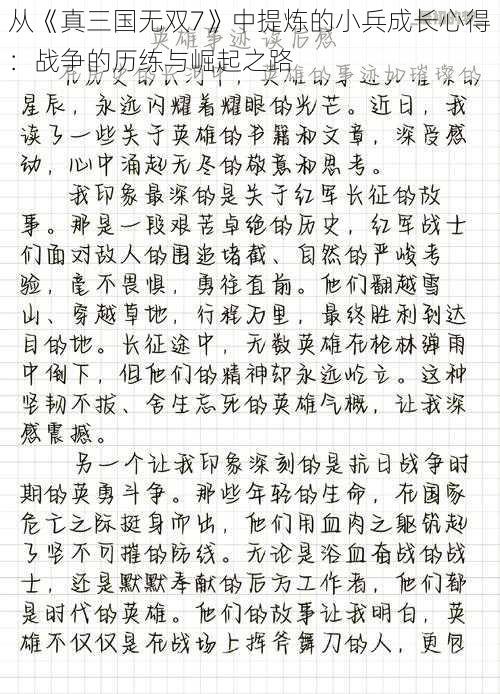 从《真三国无双7》中提炼的小兵成长心得
：战争的历练与崛起之路
英雄事迹读后感
在历史的长河中，英雄的事迹如璀璨的
星辰，永远闪耀着耀眼的光芒。近日，我
读了一些关于英雄的书籍和文章，深受感
动，心中涌起无尽的敬意和思考。
我印象最深的是关于红军长征的故
事。那是一段艰苦卓绝的历史，红军战士
们面对敌人的围追堵截、自然的严峻考
验，毫不畏惧，勇往直前。他们翻越雪
山、穿越草地，行程万里，最终胜利到达
目的地。长征途中，无数英雄在枪林弹雨
中倒下，但他们的精神却永远屹立。这种
坚韧不拔、舍生忘死的英雄气概，让我深
感震撼。
另一个让我印象深刻的是抗日战争时
期的英勇斗争。那些年轻的生命，在国家
危亡之际挺身而出，他们用血肉之躯筑起
了坚不可摧的防线。无论是浴血奋战的战
士，还是默默奉献的后方工作者，他们都
是时代的英雄。他们的故事让我明白，英
雄不仅仅是在战场上挥斧舞刀的人，更包